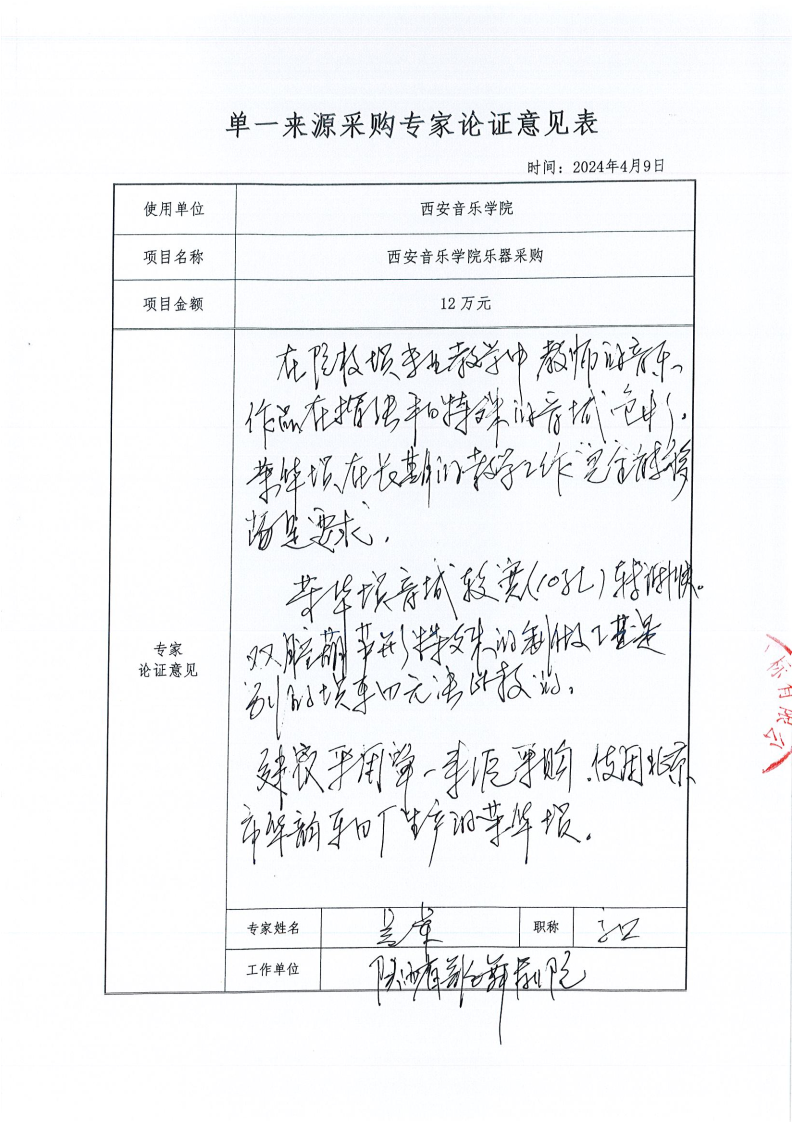 单一来源采购专家论证意见表
时间：2024年4月9日
使用单位 西安音乐学院
项目名称 西安音乐学院乐器采购
项目金额 12万元
专家
论证意见
在院校埙专业教学中教师的音乐
作品在指法和特殊的音域色彩，
荣华埙在长期的教学工作完全能够
满足要求。
荣华埙音域较宽(10孔)转调快。
双腔葫芦形特殊的制做工艺是
别的埙乐四无法比较的。
建议采用单一来源采购，使用北京
市华韵乐四厂生产的荣华埙。
专家姓名 职称
工作单位 陕西省歌舞剧院
标有限公